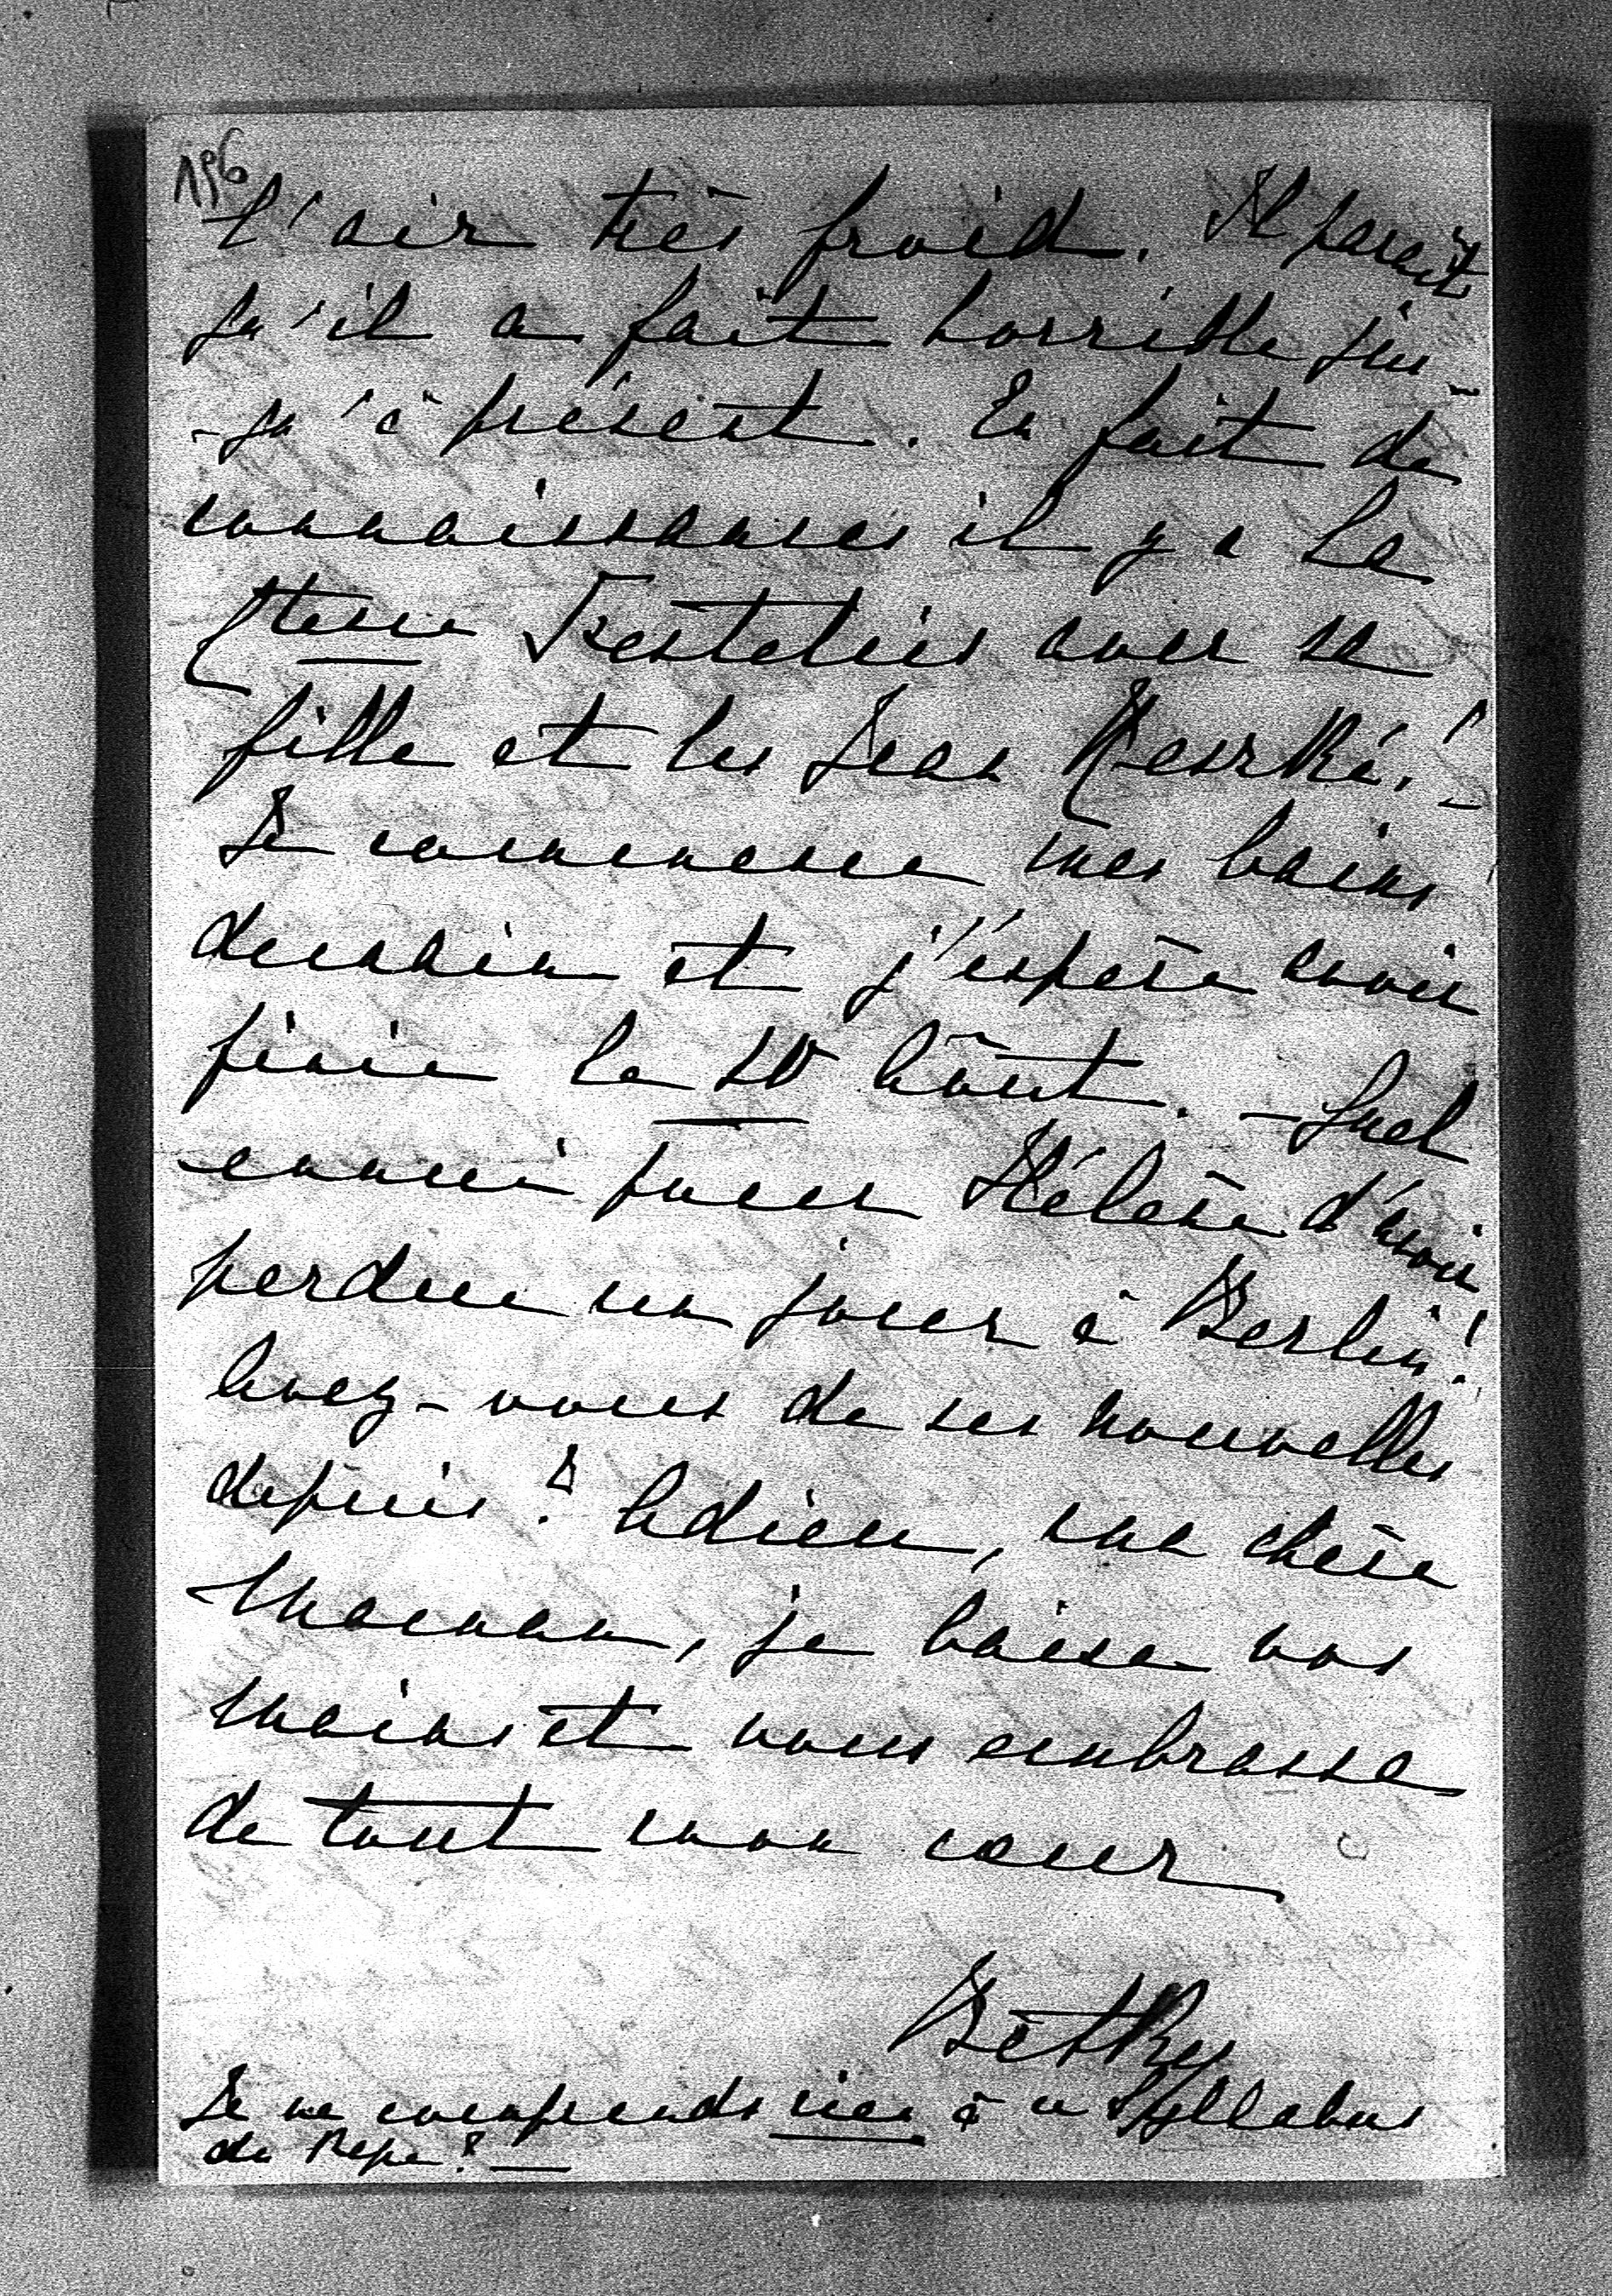 196
l'air très froid. Il paraît
qu'il a fait horrible jus-
-qu'à présent. En fait de
connaissances il y a la
Ctesse Festetics avec sa
fille et les Jean Reszké!
Je commence mes bains
demain et j'espère avoir
fini le 20 Août. - Quel
ennui pour Hélène d'avoir
perdu un jour à Berlin!
Avez-vous de ses nouvelles
depuis? Adieu, ma chère
Maman, je baise vos
mains et vous embrasse
de tout mon cœur
Betka
Je ne comprends rien à ce Syllabus
du Pape?